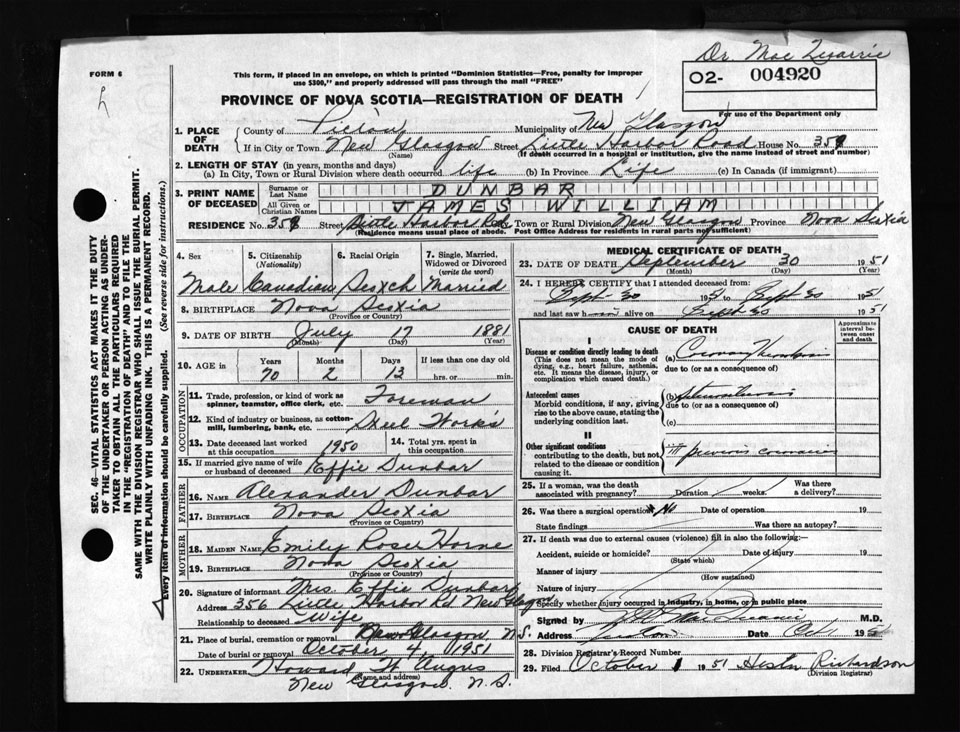 Dr. Mac Quarrie
FORM 6
This form, if placed in an envelope, on which is printed "Dominion Statistics—Free, penalty for improper
use $300," and properly addressed will pass through the mail "FREE"
O2- 004920
PROVINCE OF NOVA SCOTIA—REGISTRATION OF DEATH
For use of the Department only
1. PLACE OF DEATH County of Pictou Municipality of New Glasgow
If in City or Town New Glasgow Street Little Harbor Road House No.
(Name) (If death occurred in a hospital or institution, give the name instead of street and number)
2. LENGTH OF STAY (in years, months and days)
(a) In City, Town or Rural Division where death occurred life (b) In Province Life (c) In Canada (if immigrant)
3. PRINT NAME OF DECEASED Surname or Last Name DUNBAR
All Given or Christian Names JAMES WILLIAM
RESIDENCE No. Street Little Harbor Rd. Town or Rural Division New Glasgow Province Nova Scotia
(Residence means usual place of abode. Post Office Address for residents in rural parts not sufficient)
4. Sex 5. Citizenship (Nationality) 6. Racial Origin 7. Single, Married, Widowed or Divorced (write the word)
Male Canadian Scotch Married
8. BIRTHPLACE Nova Scotia
(Province or Country)
9. DATE OF BIRTH July 17 1881
(Month) (Day) (Year)
10. AGE in Years Months Days If less than one day old
70 2 13 hrs. or min.
OCCUPATION
11. Trade, profession, or kind of work as spinner, teamster, office clerk, etc. Foreman
12. Kind of industry or business, as cotton-mill, lumbering, bank, etc. Steel Works
13. Date deceased last worked at this occupation 1950 14. Total yrs. spent in this occupation
15. If married give name of wife or husband of deceased Effie Dunbar
FATHER
16. NAME Alexander Dunbar
17. BIRTHPLACE Nova Scotia
(Province or Country)
MOTHER
18. MAIDEN NAME Emily Rose Horne
19. BIRTHPLACE Nova Scotia
(Province or Country)
20. Signature of informant Mrs. Effie Dunbar
Address 356 Little Harbor Rd New Glasgow
Relationship to deceased Wife
21. Place of burial, cremation or removal New Glasgow, N.S.
Date of burial or removal October 4, 1951
22. UNDERTAKER Howard W. Angus
(Name and address)
New Glasgow. N.S.
MEDICAL CERTIFICATE OF DEATH
23. DATE OF DEATH September 30 1951
(Month) (Day) (Year)
24. I HEREBY CERTIFY that I attended deceased from:
Sept 30 1951 to Sept 30 1951
and last saw h alive on Sept 30 1951
CAUSE OF DEATH
Approximate interval between onset and death
I
Disease or condition directly leading to death (a) Coronary Thrombosis
(This does not mean the mode of dying, e.g., heart failure, asthenia, etc. It means the disease, injury, or complication which caused death.) due to (or as a consequence of)
Antecedent causes (b)
Morbid conditions, if any, giving rise to the above cause, stating the underlying condition last. due to (or as a consequence of)
(c)
II
Other significant conditions contributing to the death, but not related to the disease or condition causing it. previous
25. If a woman, was the death associated with pregnancy? Duration weeks. Was there a delivery?
26. Was there a surgical operation? No Date of operation 19
State findings Was there an autopsy?
27. If death was due to external causes (violence) fill in also the following:
Accident, suicide or homicide? Date of injury 19
(State which)
Manner of injury
(How sustained)
Nature of injury
Specify whether injury occurred in industry, in home, or in public place
Signed by M.D.
Address Date Oct 1 195
28. Division Registrar's Record Number
29. Filed October 1 1951 Hester Richardson
(Division Registrar)
SEC. 46—VITAL STATISTICS ACT MAKES IT THE DUTY
OF THE UNDERTAKER OR PERSON ACTING AS UNDER-
TAKER TO OBTAIN ALL THE PARTICULARS REQUIRED
IN THE "REGISTRATION OF DEATH" AND TO FILE THE
SAME WITH THE DIVISION REGISTRAR WHO SHALL ISSUE THE BURIAL PERMIT.
WRITE PLAINLY WITH UNFADING INK. THIS IS A PERMANENT RECORD.
Every item of information should be carefully supplied. (See reverse side for instructions.)